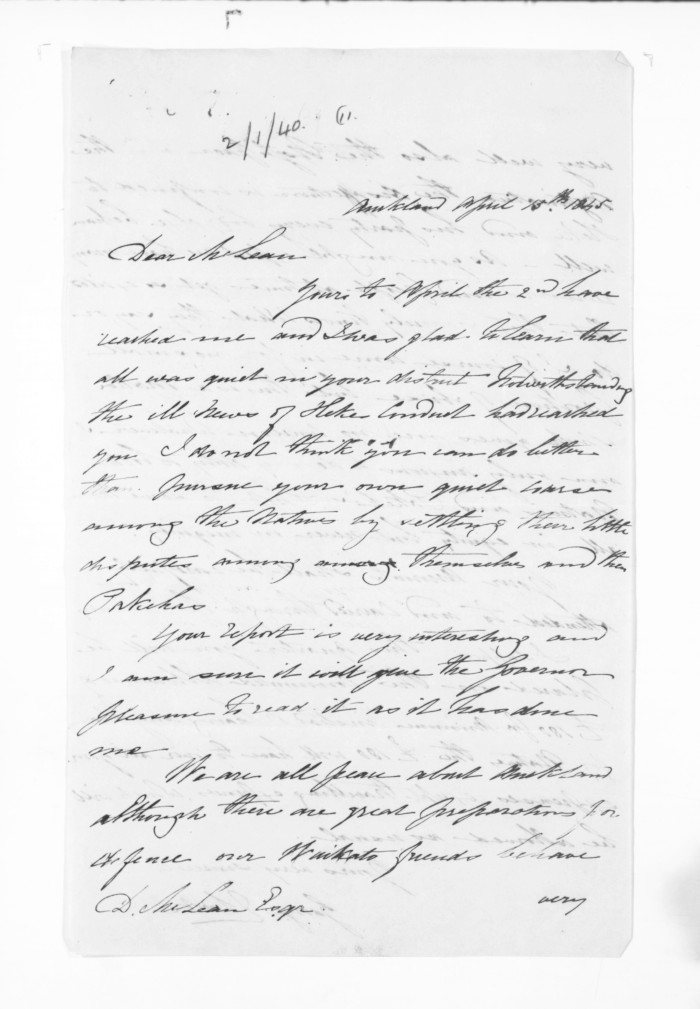 2/1/40. (1).
Auckland April 15th 1845
Dear McLean
Yours to April the 2nd have
reached me and I was glad to learn that
all was quiet in your district Notwithstanding
the ill News of Heke Conduct had reached
you. I do not think you can do better
than pursue your own quiet course
among the Natives by settling their little
disputes among among themselves and the
Pakehas
Your report is very interesting and
I am sure it will give the Governor
pleasure to read it as it has done
me
We are all peace about Auckland
although there are great preparations for
defence our Waikato friends behave
D. McLean Esqr.
very